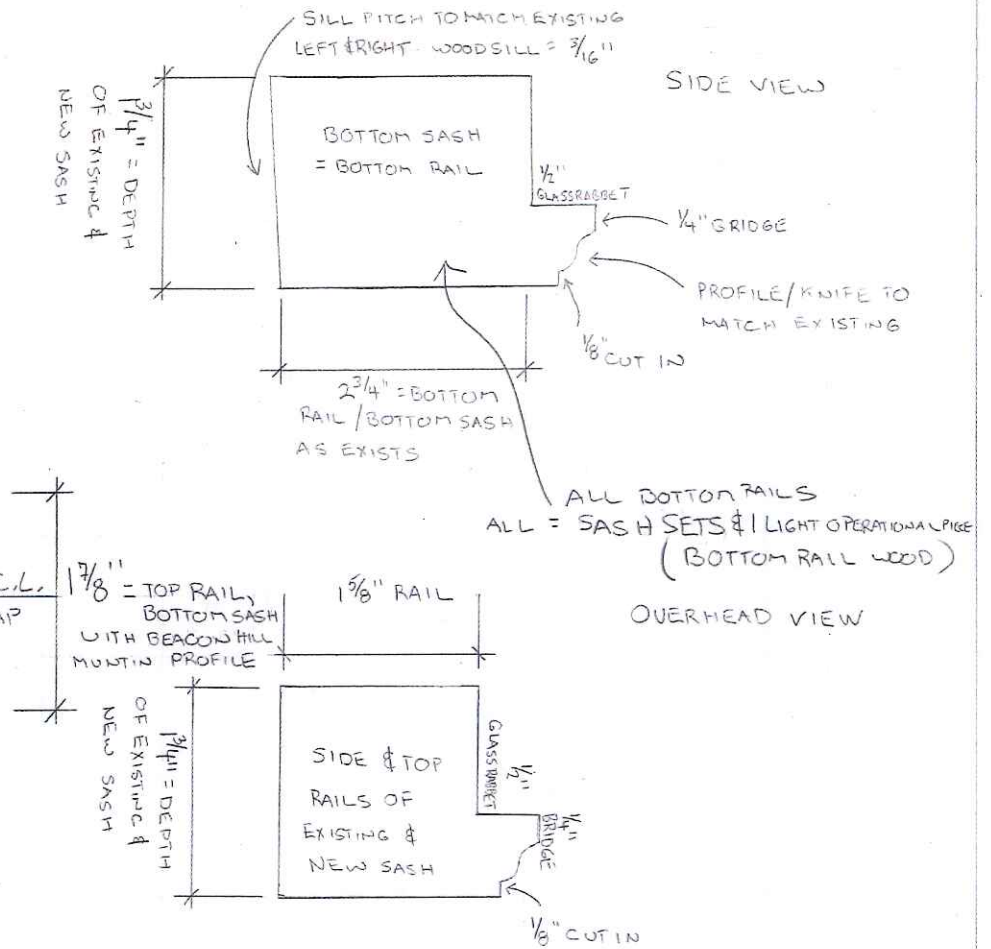 SILL PITCH TO MATCH EXISTING
LEFT & RIGHT - WOODSILL = 3/16"
SIDE VIEW
1 3/4" = DEPTH
OF EXISTING &
NEW SASH
BOTTOM SASH
= BOTTOM RAIL
1/2"
GLASSRABBET
1/4" BRIDGE
PROFILE/KNIFE TO
MATCH EXISTING
1/8" CUT IN
2 3/4" = BOTTOM
RAIL/BOTTOM SASH
AS EXISTS
ALL BOTTOM RAILS
ALL = SASH SETS & 1 LIGHT OPERATIONAL
(BOTTOM RAIL WOOD)
C.L.
1 7/8" = TOP RAIL,
BOTTOM SASH
WITH BEACON HILL
MUNTIN PROFILE
1 5/8" RAIL
OVERHEAD VIEW
1 3/4" = DEPTH
OF EXISTING &
NEW SASH
SIDE & TOP
RAILS OF
EXISTING &
NEW SASH
1/2"
GLASSRABBET
1/4"
BRIDGE
1/8" CUT IN